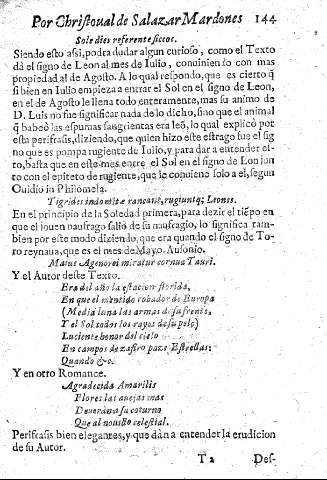 Por Christoual de Salazar Mardones 144
Sole dies referente siccos.
Siendo esto assi, podra dudar algun curioso, como el Texto
dà el signo de Leon al mes de Iulio, conuiniendo con mas
propiedad al de Agosto. A lo qual respondo, que es cierto q̃
si bien en Iulio empieza a entrar el Sol en el signo de Leon,
en el de Agosto le llena todo enteramente, mas su animo de
D. Luis no fue significar nada de lo dicho, sino que el animal
q̃ babeò las espumas sangrientas era leõ, lo qual explicò por
esta perifrasis, diziendo, que quien hizo este estrago fue el sig
no que es pompa rugiente de Iulio, y para dar a entender es-
to, basta que en este mes entre el Sol en el signo de Leon jun
to con el epiteto de rugiente, que le conuiene solo a el, segun
Ouidio in Philomela.
Tigrides indomitæ rancant, rugiuntq; Leones.
En el principio de la Soledad primera, para dezir el tiẽpo en
que el jouen naufrago saliò de su naufragio, lo significa tam-
bien por este modo diziendo, que era quando el signo de To-
ro reynaua, que es el mes de Mayo. Ausonio.
Maius Agenorei miratur cornua Tauri.
Y el Autor deste Texto.
Era del año la estacion florida,
En que el mentido robador de Europa
(Media luna las armas de su frente,
Y el Sol todos los rayos de su pelo)
Luciente honor del cielo
En campos de zafiro pace Estrellas:
Quando &c.
Y en otro Romance.
Agradecida Amarilis
Flores las auejas mas
Deueràn a su coturno
Que al nouillo celestial.
Perifrasis bien elegantes, y que dàn a entender la erudicion
de su Autor.
T 2 Des-